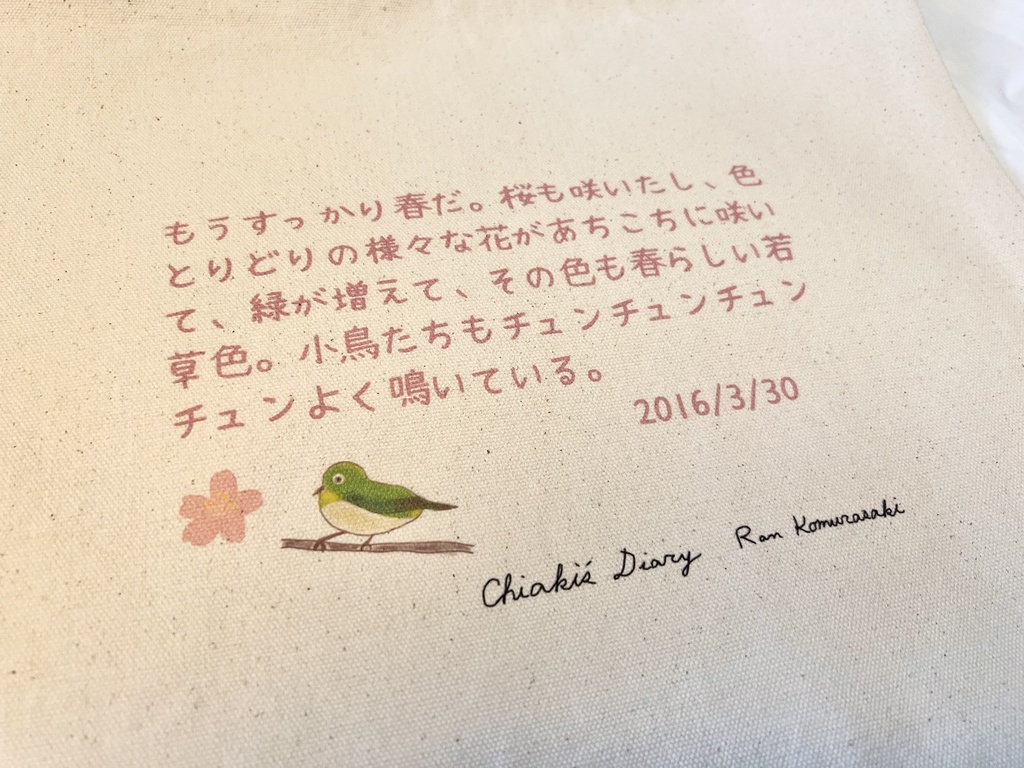 もうすっかり春だ。桜も咲いたし、色
とりどりの様々な花があちこちに咲い
て、緑が増えて、その色も春らしい若
草色。小鳥たちもチュンチュンチュン
チュンよく鳴いている。
2016/3/30
Chiaki's Diary Ran Komurasaki